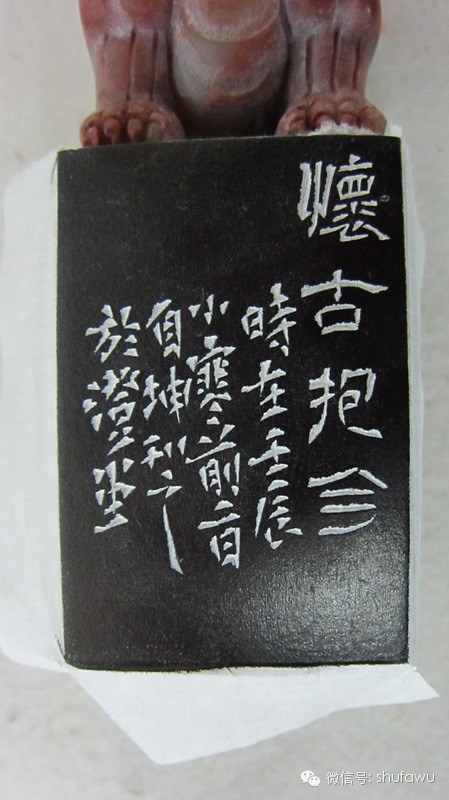 懷古抱今
時在壬辰
小寒之前一日
自坤
於澄堂
微信号: shufawu